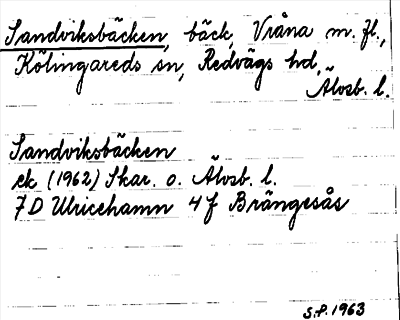 Sandviksbäcken, bäck, Vråna m. fl.,
Kölingareds sn, Redvägs hd,
Älvsb. l.
Sandviksbäcken
ek (1962) Skar. o. Älvsb. l.
7D Ulricehamn 4f Brängesås
S.P. 1963